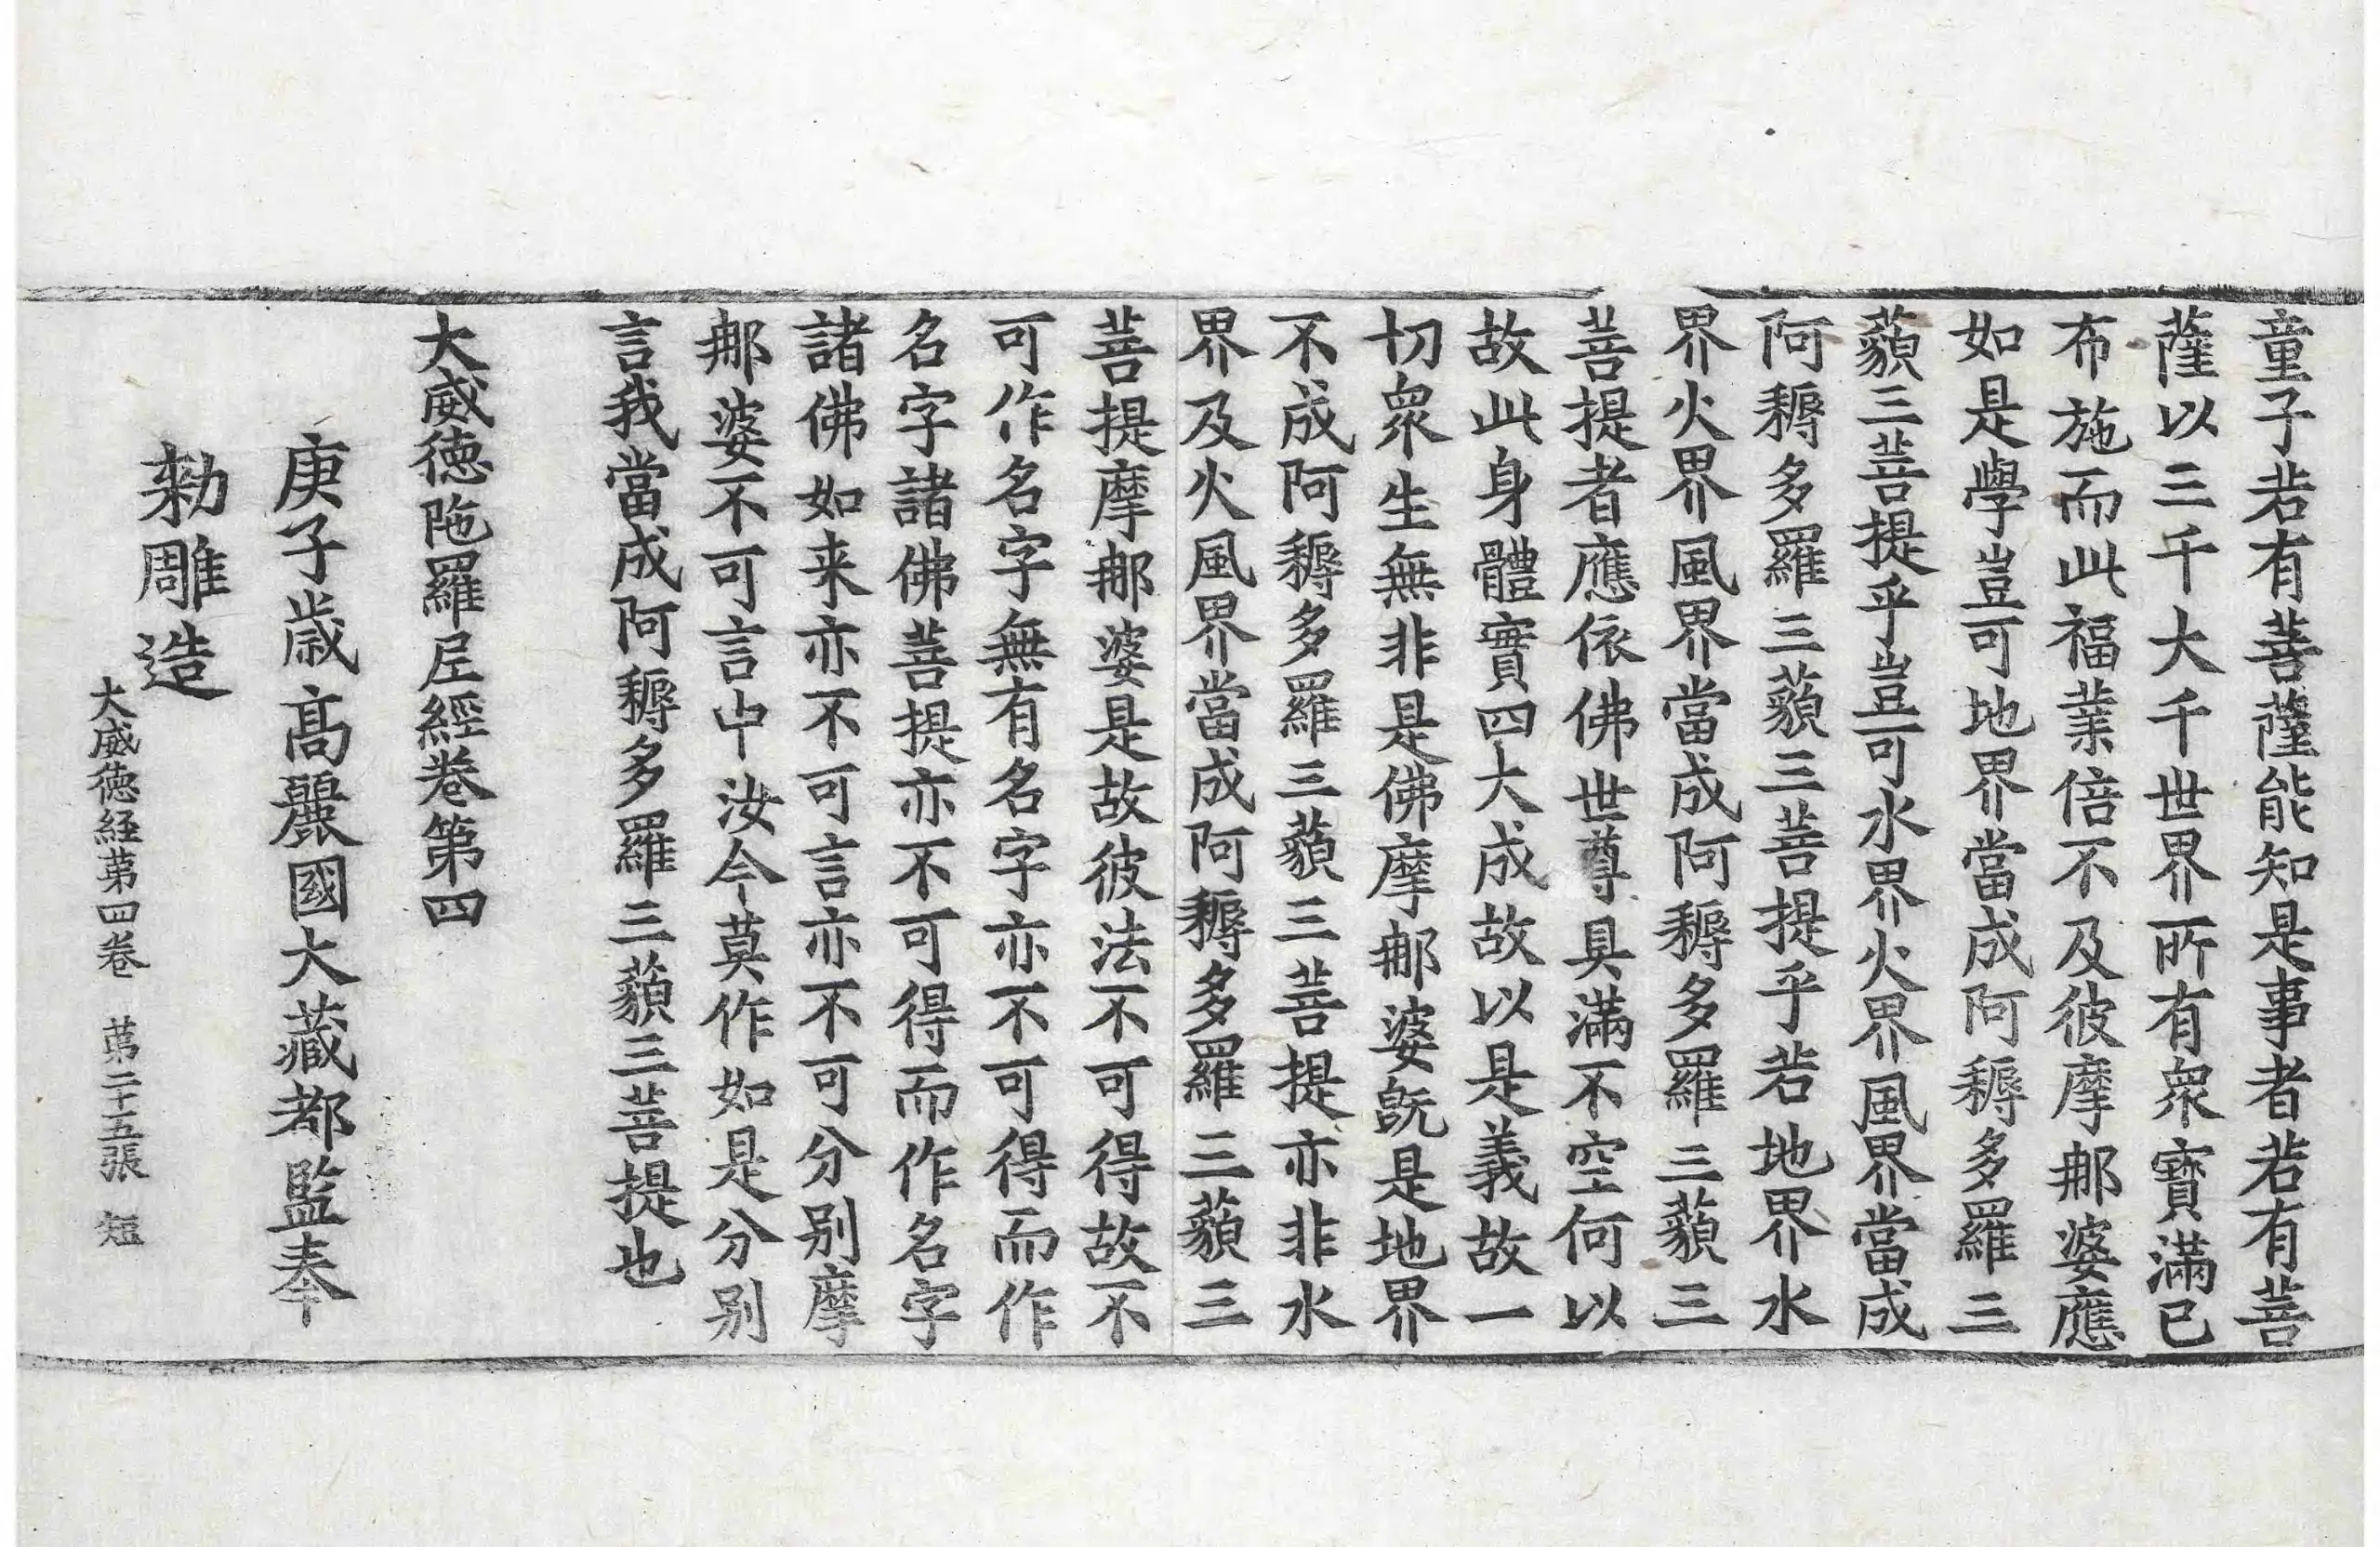 童子若有菩薩能知是事者若有菩
薩以三千大千世界所有衆寶滿已
布施而此福業倍不及彼摩那婆應
如是學豈可地界當成阿耨多羅三
藐三菩提乎豈可水界火界風界當成
阿耨多羅三藐三菩提乎若地界水
界火界風界當成阿耨多羅三藐三
菩提者應依佛世尊具滿不空何以
故此身體實四大成故以是義故一
切衆生無非是佛摩那婆旣是地界
不成阿耨多羅三藐三菩提亦非水
界及火風界當成阿耨多羅三藐三
菩提摩那婆是故彼法不可得故不
可作名字無有名字亦不可得而作
名字諸佛菩提亦不可得而作名字
諸佛如来亦不可言亦不可分别摩
那婆不可言中汝今莫作如是分别
言我當成阿耨多羅三藐三菩提也
大威德陁羅尼經卷第四
庚子歲高麗國大藏都監奉
勑雕造
大威德経第四卷 第二十五張 短